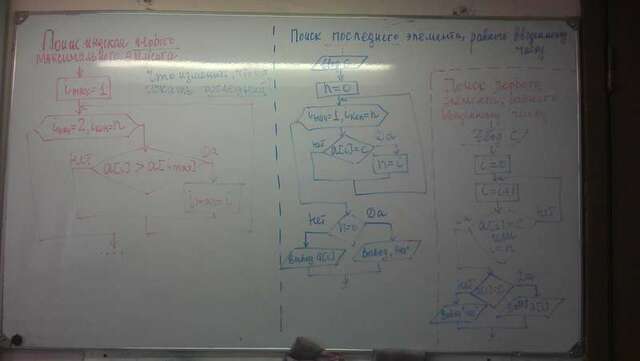 Поиск индекса первого
максимального элемента
Что изменить, чтобы
искать последний
imax=1
iнач=2, iкон=n
нет
Да
a[i] > a[imax]
imax=i
Поиск последнего элемента, равного введенному
числу
Ввод C
n=0
iнач=1, iкон=n
нет
Да
a[i]=c
n=i
Нет
Да
n=0
Вывод a[i]
Вывод "нет"
Поиск первого
элемента, равного
введенному числу
Ввод C
i=0
i=i+1
нет
a[i]=c
или
i=n
нет
Да
Вывод a[i]